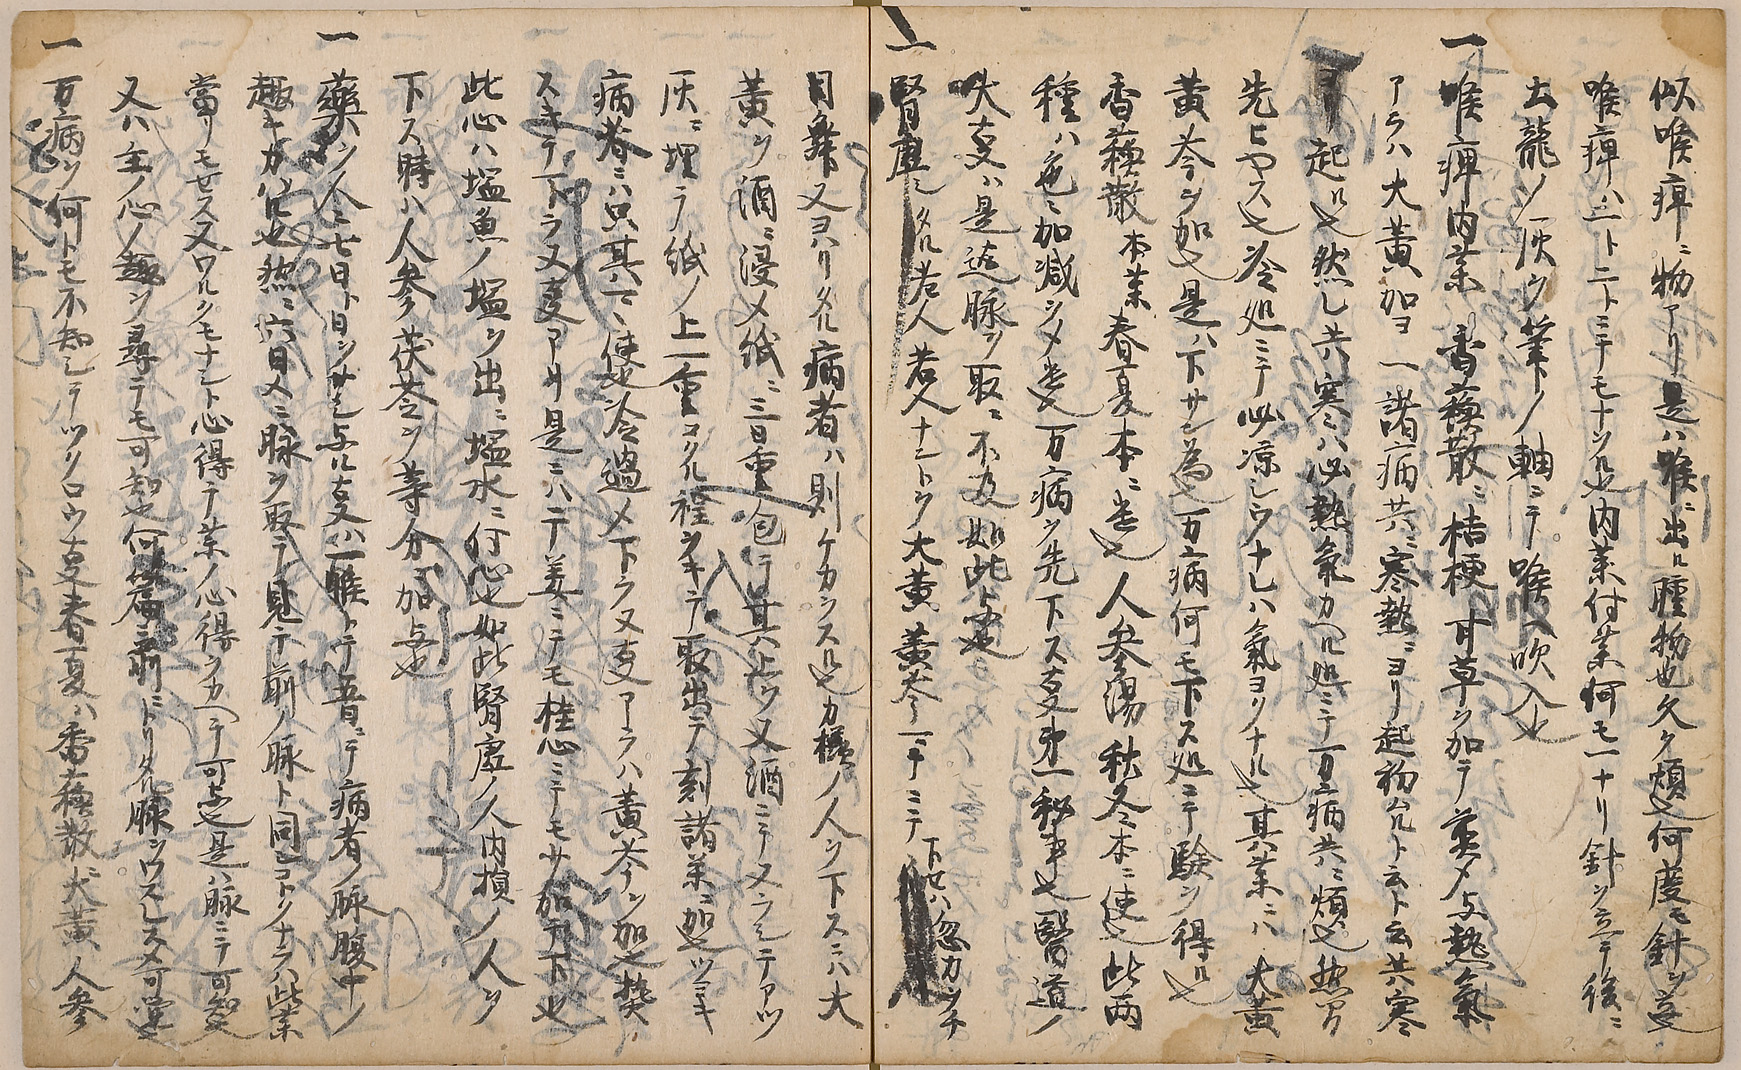 似喉痺ニ物アリ是ハ喉ニ出ル腫物也久ク煩也何度モ針ヲ立
喉痺ハ一トニトミテモナヲル也内薬付薬何モ一ナリ針ヲ立テ後ニ
土龍ノ灰ヲ筆ノ軸ニテ喉ヘ吹入也
一 喉痺内薬 香薷散ニ桔梗甘草ヲ加テ煎メ与熱氣
アラハ大黄加ヨ一諸病共ニ寒熱ニヨリ起物ルト云ト云共寒
ヨリ起ル也然レ共寒ニハ必熱氣カヘル処ニテ万病共ニ煩也熱ヲ
先ヒヤス也冷処ニテ必凉シウナレハ氣ヨクナル也其薬ニハ大黄
黄芩ヲ加也是ハ下サン為也万病何モ下ス処ニテ験ヲ得ル也
香薷散本薬春夏本ニ也人参湯秋冬本ニ使也此両
種ハ也ニ加减シメ也万病ヲ先下ス支第一秘事也醫道ノ
大支ハ是迄脉ヲ取ニ不及如此与也
一 腎虚シタル老人若人ナントヲ大黄黄芩一下ミテ下セハ忽カツチ
目舞又ヨハリタル病者ハ則ケカラスル也カ様ノ人ヲ下スニハ大
黄ヲ酒ニ浸メ紙ニ三日重包テ其上ヲ又酒ニテヌラシテアツ
灰ニ埋テ紙ノ上一重コクル程ヤキテ取出テ刻諸薬ニ加也ツヨキ
病者ニハ只其マヽ使也冷過メ下ラヌ支アラハ黄芩ヲ加也
スキテ下ラヌ支アリ是ニハ干姜ニテモ桂心ニテモサ加テ下也
此心ハ塩魚ノ塩ヲ出ニ塩水ニ付心也如此腎虚ノ人内損ノ人ヲ
下ス時ハ人参茯苓ヲ等分ニ加与也
一 薬ヲ人ニ七日ト日ヲサシ与ル支ハ一喉トテ五日ニテ病者ノ脉腹中ノ
趣キカハル也然ニ六日メニ脉ヲ取テ見テ前ノ脉ト同シコトクナラハ此薬
當リモセス又ワルクモナシト心得テ薬ノ心得ヲカヘテ可与也是ハ脉ニテ可知
又ハ主ノ心ノ趣ヲ尋テモ可知也何篇ニ前ニトリタル脉ヲワスレスメ可覚
一 万病ヲ何トモ不知シテツクロウ支春夏ハ香薷散大黄人参